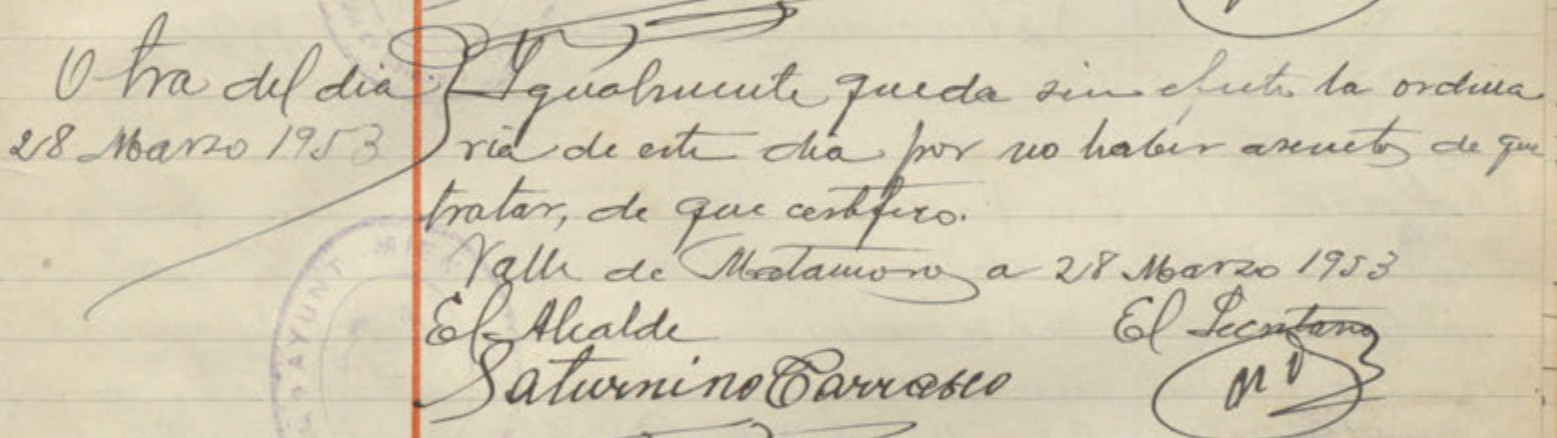 Otra del dia
28 Marzo 1953
Igualmente queda sin efecto la ordina
ria de este dia por no haber asuntos de que
tratar, de que certifico.
Valle de Matamoros a 28 Marzo 1953
El Alcalde
El Secretario
Saturnino Carrasco
AYUNT